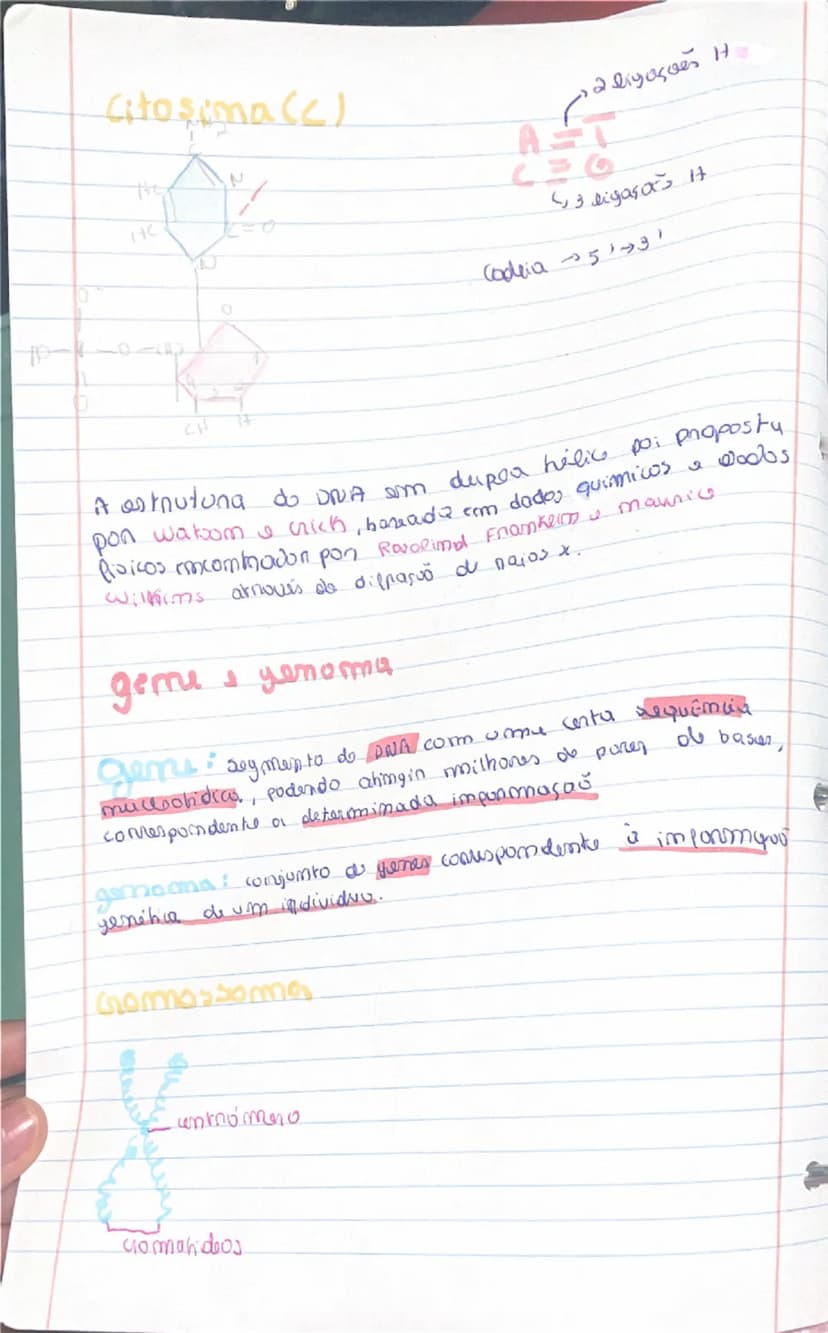 Citosina (C)
NH2
C
HC
N
HC
C=O
N
2 ligações H
A = T
C ≡ G
3 ligações H
Cadeia → 5' → 3'
O
O
CH
H
A estrutura do DNA em dupla hélice foi proposta
por Watson e Crick, baseada em dados químicos e dados
físicos encontrados por Rosalind Franklin e Maurice
Wilkins através da difração de raios x.
gene e genoma
gene: segmento do DNA com uma certa sequência
nucleotídica, podendo atingir milhares de pares de bases,
correspondente a determinada informação
genoma: conjunto de genes correspondente à informação
genética de um indivíduo.
Cromossoma
centrómero
cromatídeos